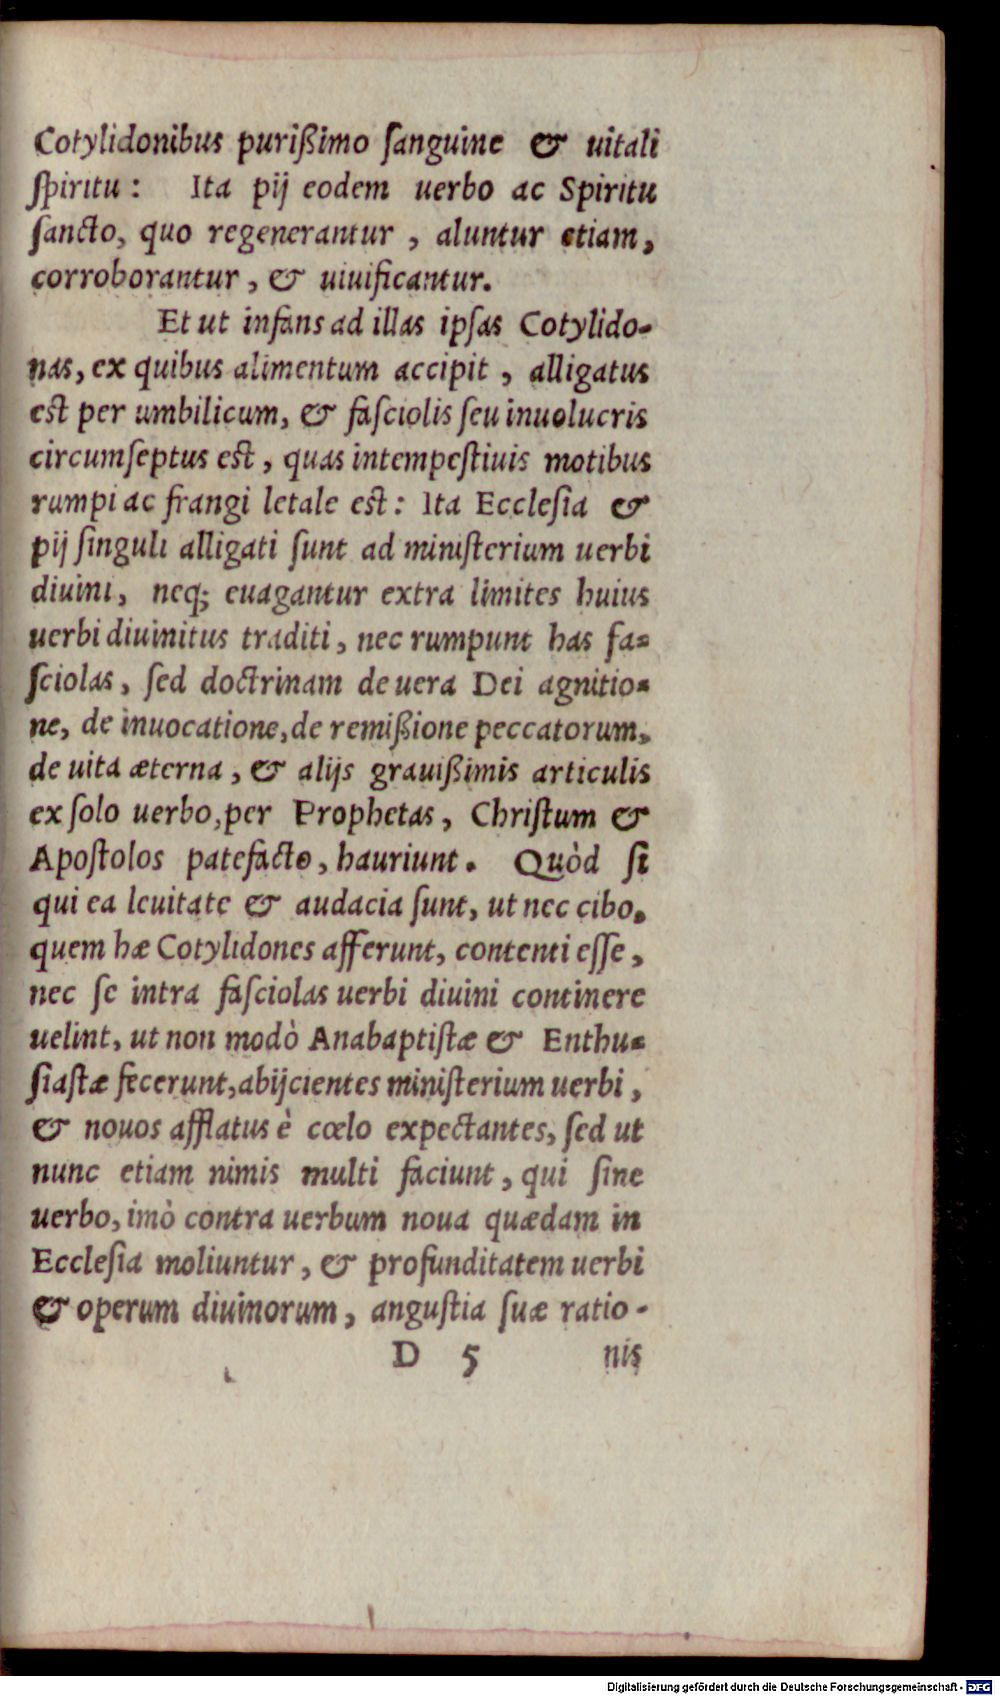 Cotylidonibus purißimo ſanguine & uitali
ſpiritu: Ita pij eodem uerbo ac Spiritu
ſancto, quo regenerantur, aluntur etiam,
corroborantur, & uiuificantur.
Et ut infans ad illas ipſas Cotylido-
nas, ex quibus alimentum accipit, alligatus
est per umbilicum, & faſciolis ſeu inuolucris
circumſeptus est, quas intempeſtiuis motibus
rumpi ac frangi letale est: Ita Eccleſia &
pij ſinguli alligati ſunt ad miniſterium uerbi
diuini, neq; euagantur extra limites huius
uerbi diuinitus traditi, nec rumpunt has fa-
ſciolas, ſed doctrinam de uera Dei agnitio-
ne, de inuocatione, de remißione peccatorum,
de uita æterna, & alijs grauißimis articulis
ex ſolo uerbo, per Prophetas, Chriſtum &
Apoſtolos patefacto, hauriunt. Quòd ſi
qui ea leuitate & audacia ſunt, ut nec cibo,
quem hæ Cotylidones afferunt, contenti eſſe,
nec ſe intra faſciolas uerbi diuini continere
uelint, ut non modò Anabaptiſtæ & Enthu-
ſiaſtæ fecerunt, abijcientes miniſterium uerbi,
& nouos afflatus è cœlo expectantes, ſed ut
nunc etiam nimis multi faciunt, qui ſine
uerbo, imò contra uerbum noua quædam in
Eccleſia moliuntur, & profunditatem uerbi
& operum diuinorum, anguſtia ſuæ ratio-
D 5 nis
Digitalisierung gefördert durch die Deutsche Forschungsgemeinschaft - DFG